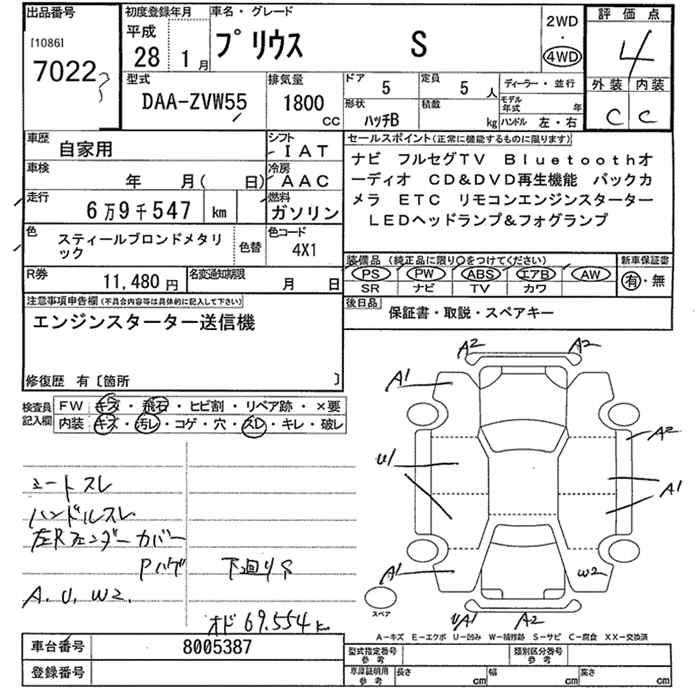 出品番号 初度登録年月 車名・グレード 2WD 評価点
[1086] 平成 プリウス S 4WD 4
7022 28 1月
型式 排気量 ドア 5 定員 5人 ディーラー・並行 外装 内装
DAA-ZVW55 1800CC 形状 ハッチB 積載 kg モデル年式 年 C C
ハンドル 左・右
車歴 自家用 シフト IAT セールスポイント(正常に機能するものに限ります)
車検 年 月( 日) 冷房 AAC ナビ フルセグTV Bluetoothオ
走行 6万9千547 km 燃料 ガソリン ーディオ CD&DVD再生機能 バックカ
メラ ETC リモコンエンジンスターター
LEDヘッドランプ&フォグランプ
色 スティールブロンドメタリック 色替 色コード 4X1
装備品(純正品に限り○をつけてください) 新車保証書
PS PW ABS エアB AW 有・無
SR ナビ TV カワ
R券 11,480円 名変通知期限 月 日
後日品 保証書・取説・スペアキー
注意事項申告欄(不具合内容等は具体的に記入して下さい)
エンジンスターター送信機
修復歴 有〔箇所 〕
検査員記入欄 FW キズ・飛石・ヒビ割・リペア跡・×要
内装 キズ・汚レ・コゲ・穴・スレ・キレ・破レ
A2 A2
A1
A2
U1 A1
A1
A1 W2
UA1 A2
スペア
シートスレ
ハンドルスレ
左Rフェンダーカバー
Pハゲ 下回りサ
A.U.W2.
オド69.554k
A−キズ E−エクボ U−凹み W−補修跡 S−サビ C−腐食 XX−交換済
車台番号 8005387 型式指定番号 参考 類別区分番号 参考
登録番号 車庫証明用 参考 長さ cm 幅 cm 高さ cm